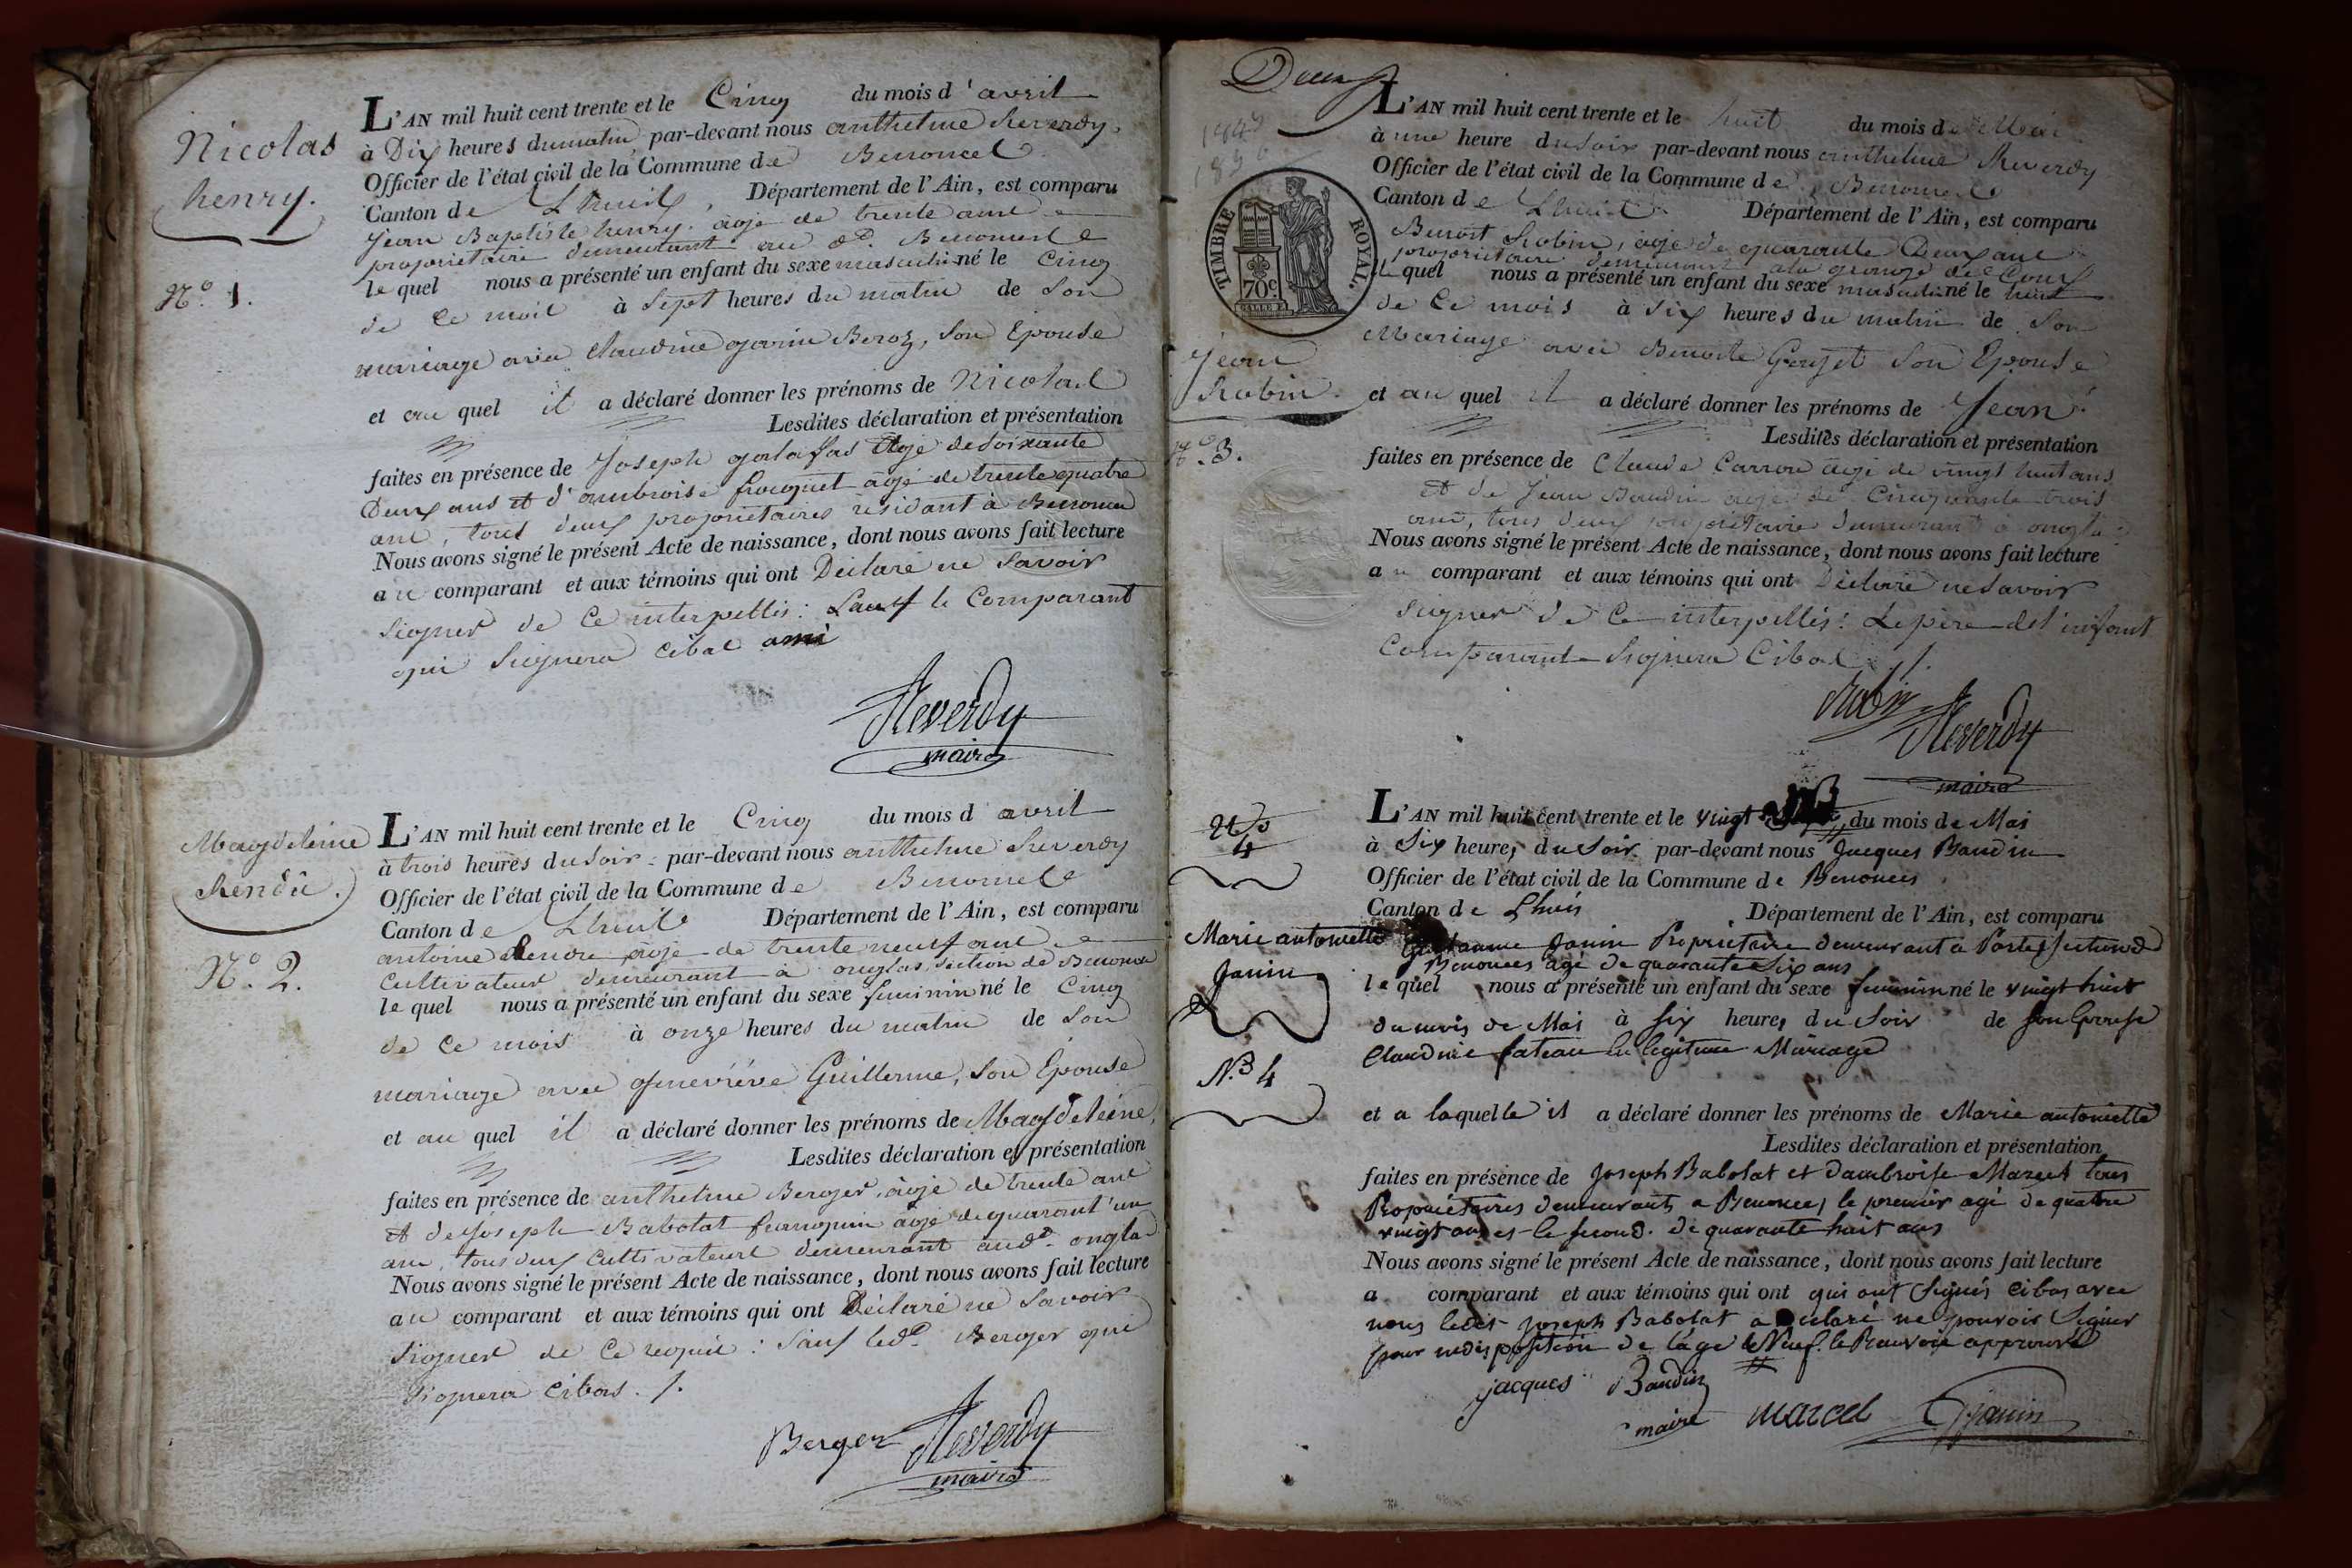 Nicolas
henry.
N.o 1.
L'AN mil huit cent trente et le Cinq du mois d'avril
à Dix heures du matin, par-devant nous anthelme Reverdy,
Officier de l'état civil de la Commune de Benonces
Canton de Lhuis, Département de l'Ain, est comparu
Jean Baptiste henry, agé de trente ans
propriétaire demeurant au dt. Benonces
le quel nous a présenté un enfant du sexe masculin né le Cinq
de Ce mois à Sept heures du matin de Son
mariage avec Claudine Son Epouse
et au quel il a déclaré donner les prénoms de Nicolas
Lesdites déclaration et présentation
faites en présence de Joseph agé de soixante
Deux ans et d'ambroise agé de trente quatre
ans, tous deux propriétaires résidant à Benonces
Nous avons signé le présent Acte de naissance, dont nous avons fait lecture
au comparant et aux témoins qui ont Déclaré ne Savoir
signer de Ce interpellés : Sauf le Comparant
qui Signera Cibas
Reverdy
maire
Magdeleine
Rendu.
N.o 2.
L'AN mil huit cent trente et le Cinq du mois d avril
à trois heures du Soir par-devant nous anthelme Reverdy
Officier de l'état civil de la Commune de Benonces
Canton de Lhuis Département de l'Ain, est comparu
antoine Rendu agé de trente neuf ans
Cultivateur demeurant à onglas, Section de Benonces
le quel nous a présenté un enfant du sexe feminin né le Cinq
de Ce mois à onze heures du matin de Son
mariage avec genevieve Guillerme, Son Epouse
et au quel il a déclaré donner les prénoms de Magdeleine,
Lesdites déclaration et présentation
faites en présence de anthelme Berger, agé de trente ans
et de Joseph Babolat agé de quarant'un
ans, tous deux Cultivateurs demeurant audt. onglas
Nous avons signé le présent Acte de naissance, dont nous avons fait lecture
au comparant et aux témoins qui ont Déclaré ne Savoir
signer de Ce requis : Sauf led. Berger qui
signera Cibas ./.
Berger Reverdy
maire
Deux
TIMBRE ROYAL.
70c
Jean
Robin.
N.o 3.
L'AN mil huit cent trente et le huit du mois de Mai
à une heure du Soir par-devant nous anthelme Reverdy
Officier de l'état civil de la Commune de Benonces
Canton de Lhuis Département de l'Ain, est comparu
Benoit Robin, agé de quarante Deux ans
propriétaire demeurant a la grange de Cour
le quel nous a présenté un enfant du sexe masculin né le huit
de Ce mois à six heures du matin de Son
Mariage avec Benoite Son Epouse
et au quel il a déclaré donner les prénoms de Jean
Lesdites déclaration et présentation
faites en présence de Claude Carron agé de vingt huit ans
et de Jean Baudin agé de Cinquante trois
ans, tous deux propriétaires demeurant à onglas
Nous avons signé le présent Acte de naissance, dont nous avons fait lecture
au comparant et aux témoins qui ont Déclaré ne Savoir
signer de Ce interpellés : Le père de l'enfant
Comparant Signera Cibas ./.
Robin Reverdy
maire
N.o
4
Marie antoinette
Janin
N.o 4
L'AN mil huit cent trente et le vingt du mois de Mai
à Six heures du Soir par-devant nous Jacques Baudin
Officier de l'état civil de la Commune de Benonces
Canton de Lhuis Département de l'Ain, est comparu
Guillaume Janin Propriétaire demeurant a Portes section de
Benonces agé de quarante Six ans
le quel nous a présenté un enfant du sexe feminin né le vingt huit
du mois de Mai à six heures du Soir de son Epouse
Claudine fateau en legitime Mariage
et a laquelle il a déclaré donner les prénoms de Marie antoinette
Lesdites déclaration et présentation
faites en présence de Joseph Babolat et d'ambroise Marcel tous
Propriétaires demeurants a Benonces, le premier agé de quatre
vingt ans et le second de quarante huit ans
Nous avons signé le présent Acte de naissance, dont nous avons fait lecture
a comparant et aux témoins qui ont qui ont signés cibas avec
nous ledit Joseph Babolat a Déclaré ne pouvoir Signer
pour indisposition de l'age approuvé
jacques Baudin
maire marcel Janin